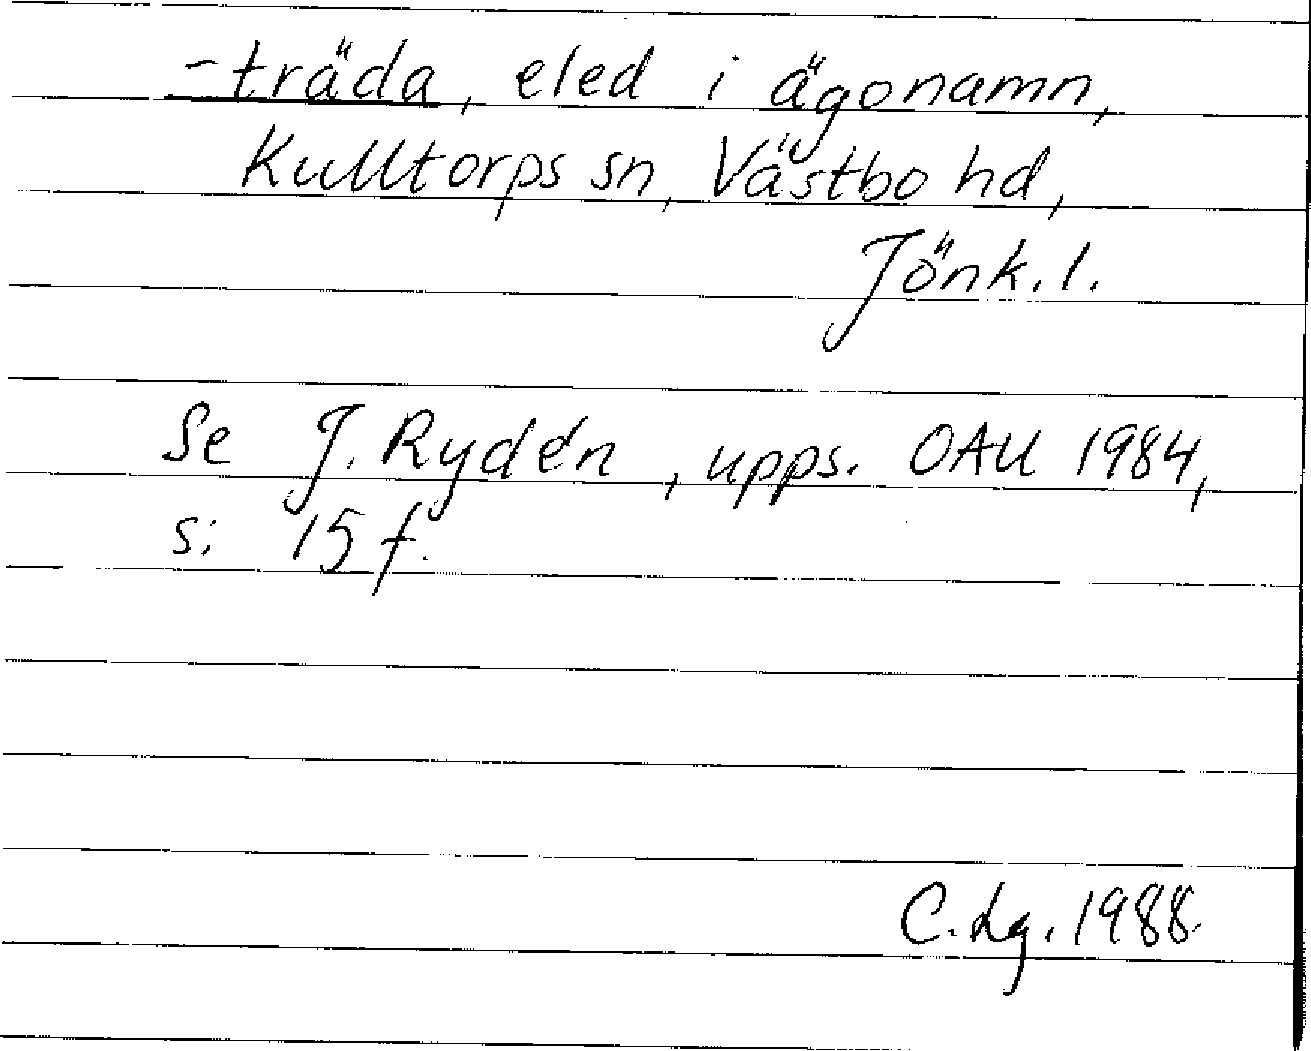 -träda, eled i ägonamn,
Kulltorps sn, Västbo hd,
Jönk. l.
Se J. Rydén, upps. OAU 1984,
s: 15 f.
C. Lg. 1988.